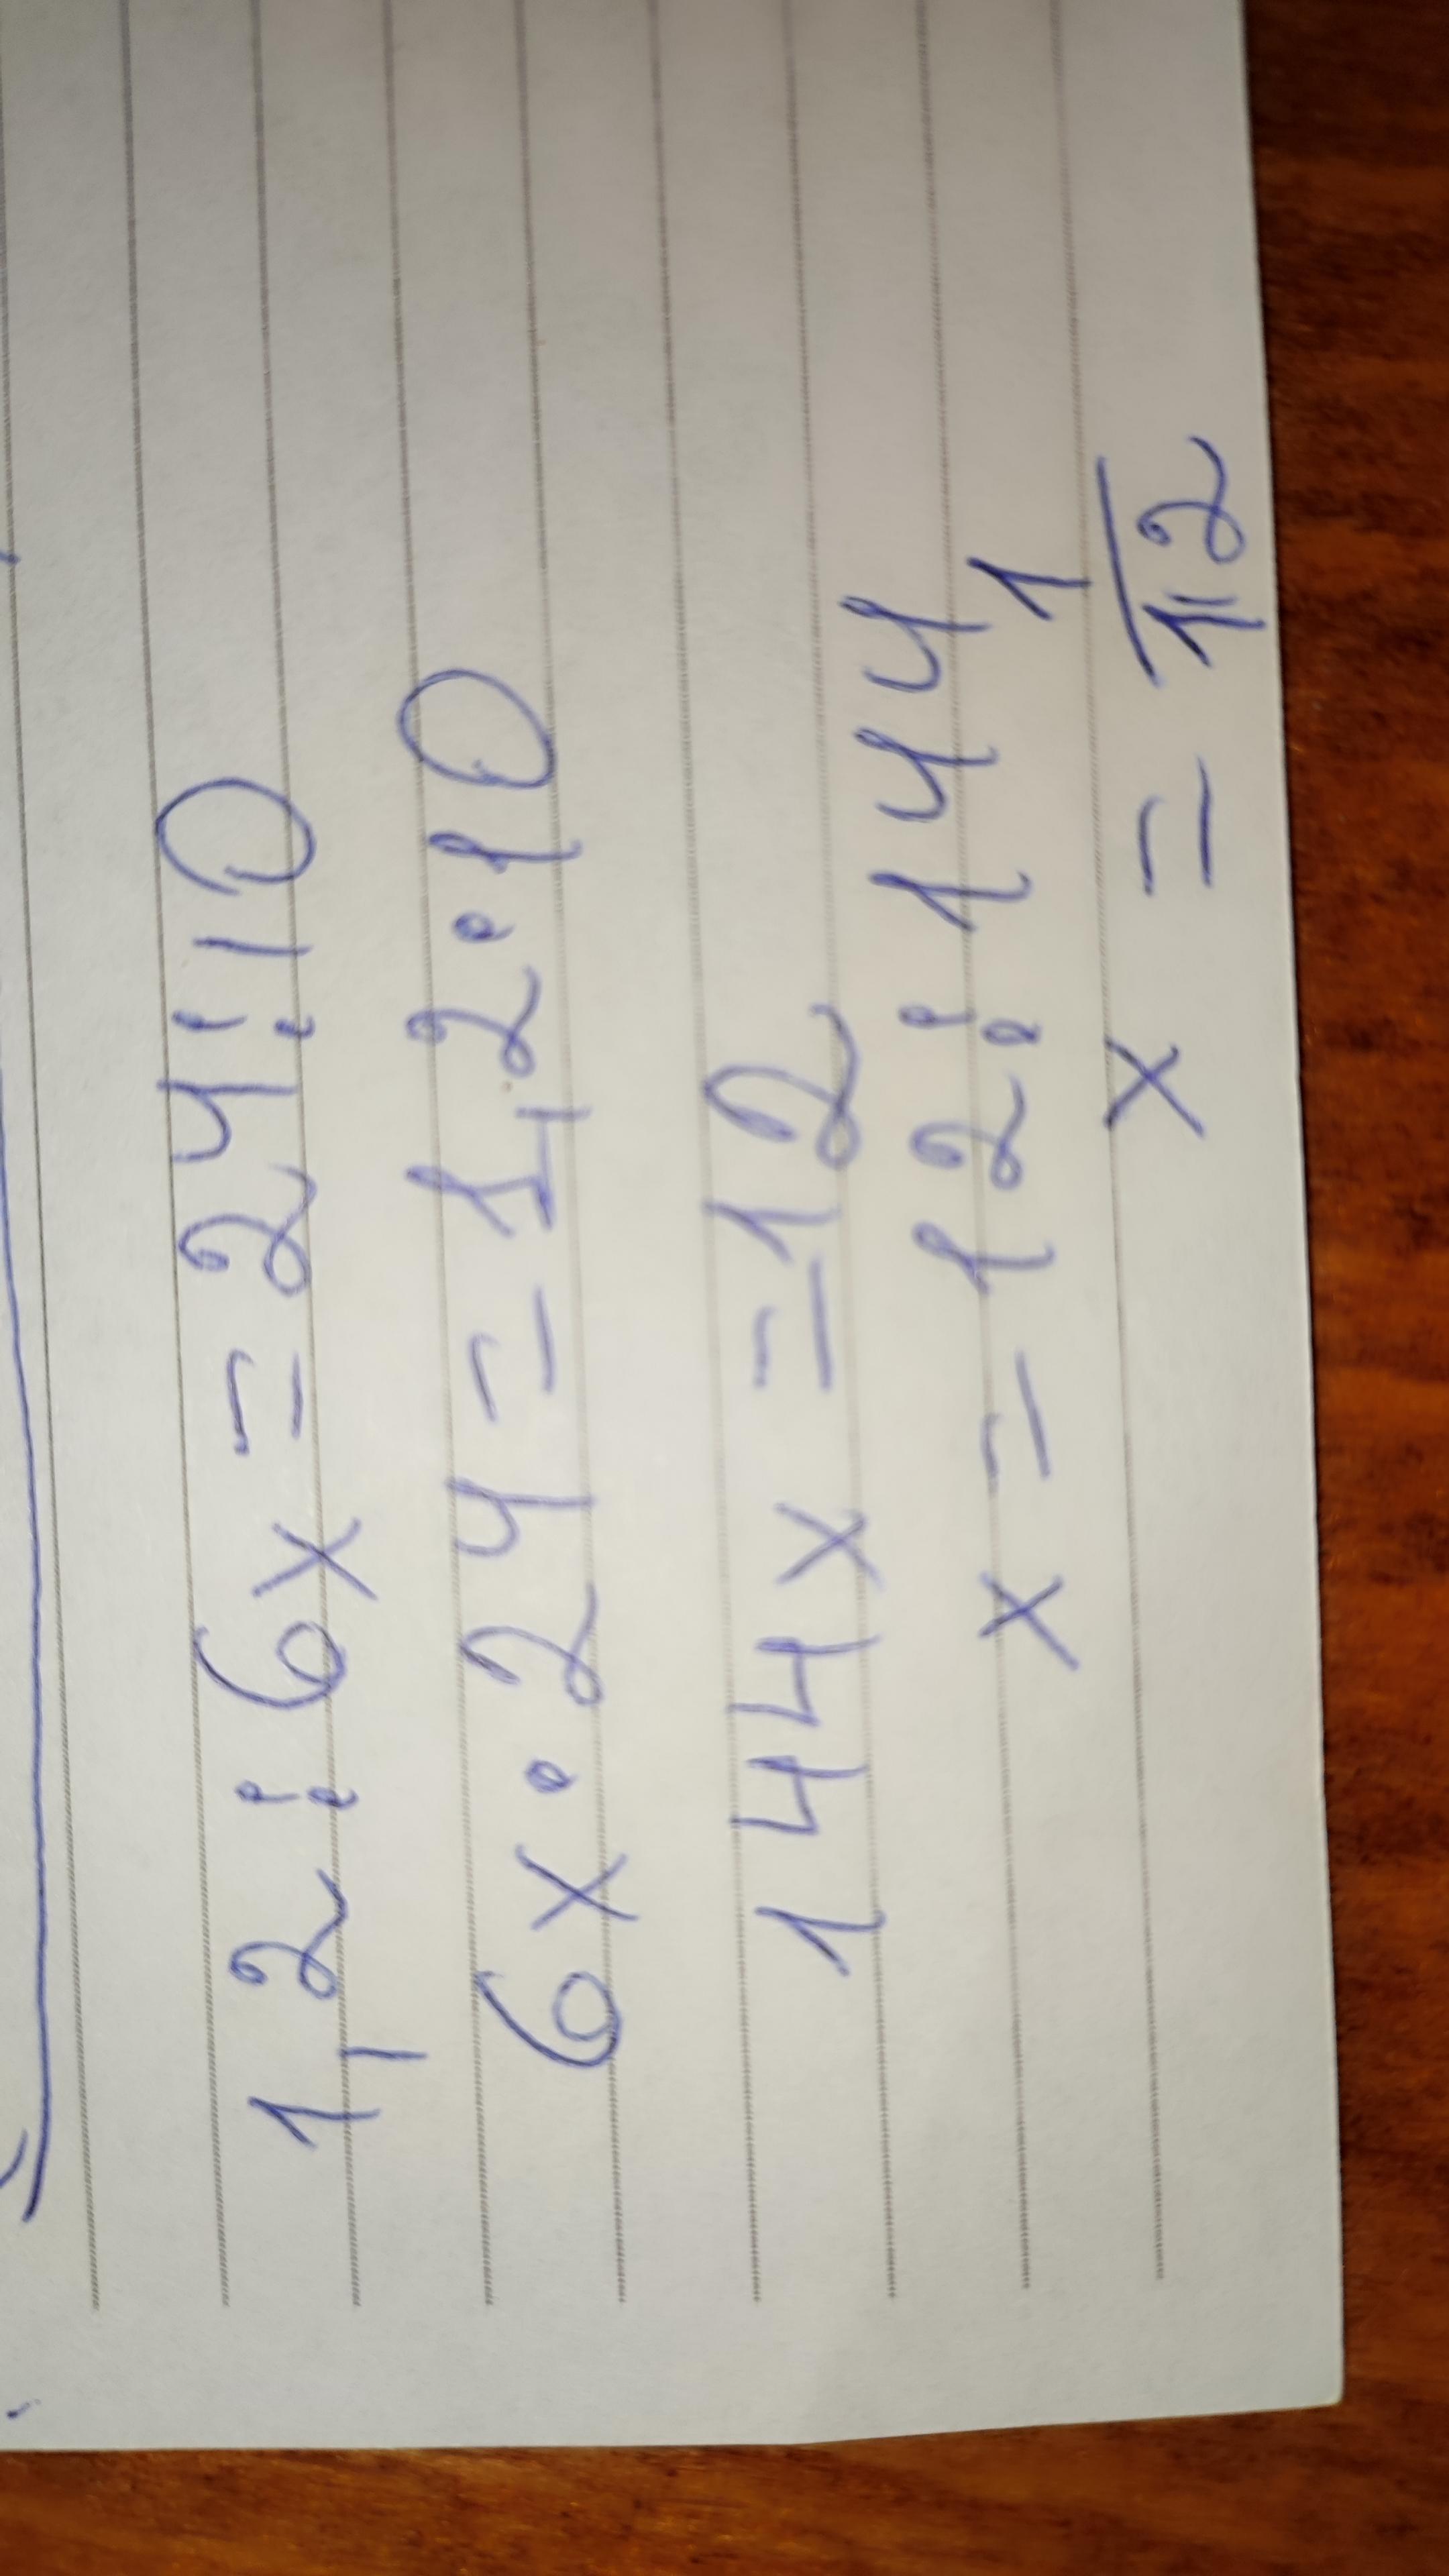 1,2:6x=24:10
6x·24=1,2·10
144x=12
x=12:144
x=1/12